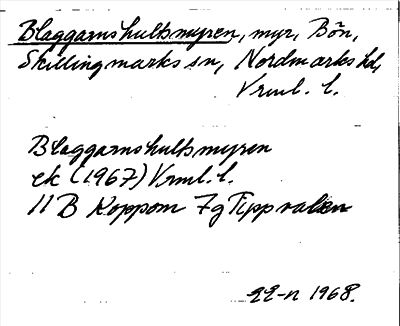 Blaggarnshultsmyren, myr, Bön,
Skillingmarks sn, Nordmarks hd,
Vrml. l.
Blaggarnshultsmyren
ek (1967) Vrml. l.
11 B Koppom 7g
1968.